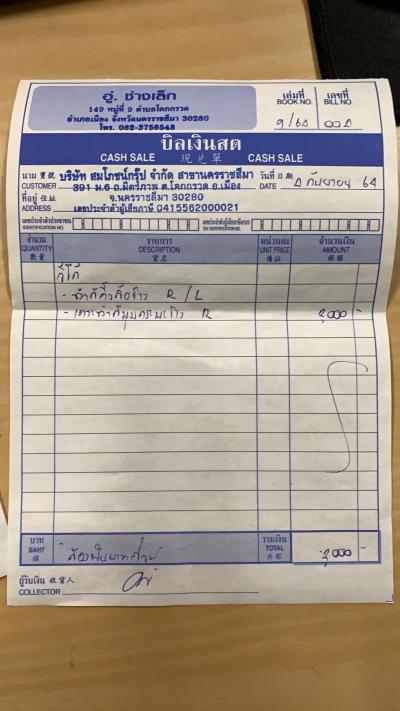 อู่. ช่างเล็ก
149 หมู่ที่ 9 ตำบลโคกกรวด
อำเภอเมือง จังหวัดนครราชสีมา 30280
โทร. 062-3756545
เล่มที่ เลขที่
BOOK NO. BILL NO.
9/64 004
บิลเงินสด
CASH SALE 現兌單 CASH SALE
นาม 寶號 บริษัท สมโภชน์กรุ๊ป จำกัด สาขานครราชสีมา วันที่ 日期
CUSTOMER 391 ม.6 ถ.มิตรภาพ ต.โคกกรวด อ.เมือง DATE 4 กันยายน 64
ที่อยู่ 住址 จ.นครราชสีมา 30280
ADDRESS เลขประจำตัวผู้เสียภาษี 0415562000021
เลขประจำตัวประชาชน เลขประจำตัวผู้เสียภาษี
IDENTIFICATION NO. TAX IDENTIFICATION NO.
จำนวน รายการ หน่วยละ จำนวนเงิน
QUANTITY DESCRIPTION UNIT PRICE AMOUNT
數量 貨名
R / L
R 2,000 -
บาท รวมเงิน
BAHT สองพันบาทถ้วน TOTAL 2,000 -
銖 共銀
ผู้รับเงิน 收貨人
COLLECTOR